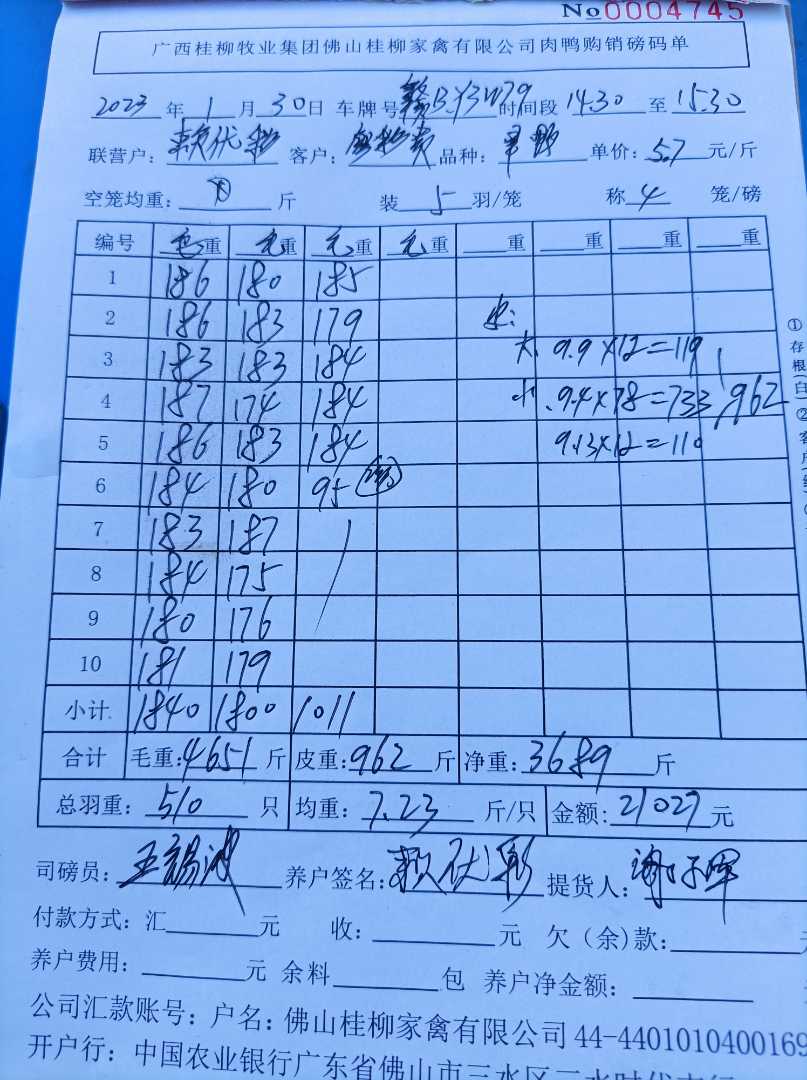 No 0004745
广西桂柳牧业集团佛山桂柳家禽有限公司肉鸭购销磅码单
2023 年 1 月 30 日 车牌号 赣BY3W79 时间段 14.30 至 15.30
联营户: 客户: 品种: 单价: 5.7 元/斤
空笼均重: 斤 装 5 羽/笼 称 4 笼/磅
编号 毛重 毛重 毛重 毛重 重 重 重 重
1 186 180 185
2 186 183 179 皮:
3 183 183 184 大. 9.9×12=119
4 187 174 184 小. 9.4×78=733 962
5 186 183 184 9.13×12=110
6 184 180 95
7 183 187
8 184 175
9 180 176
10 181 179
小计. 1840 1800 1011
合计 毛重: 4651 斤 皮重: 962 斤 净重: 3689 斤
总羽重: 510 只 均重: 7.23 斤/只 金额: 21027 元
司磅员: 王锡波 养户签名: 提货人:
付款方式: 汇 元 收: 元 欠(余)款:
养户费用: 元 余料 包 养户净金额:
公司汇款账号: 户名: 佛山桂柳家禽有限公司 44-4401010400169
开户行: 中国农业银行广东省佛山市三水区三水时代支行
①存根(白)②客户